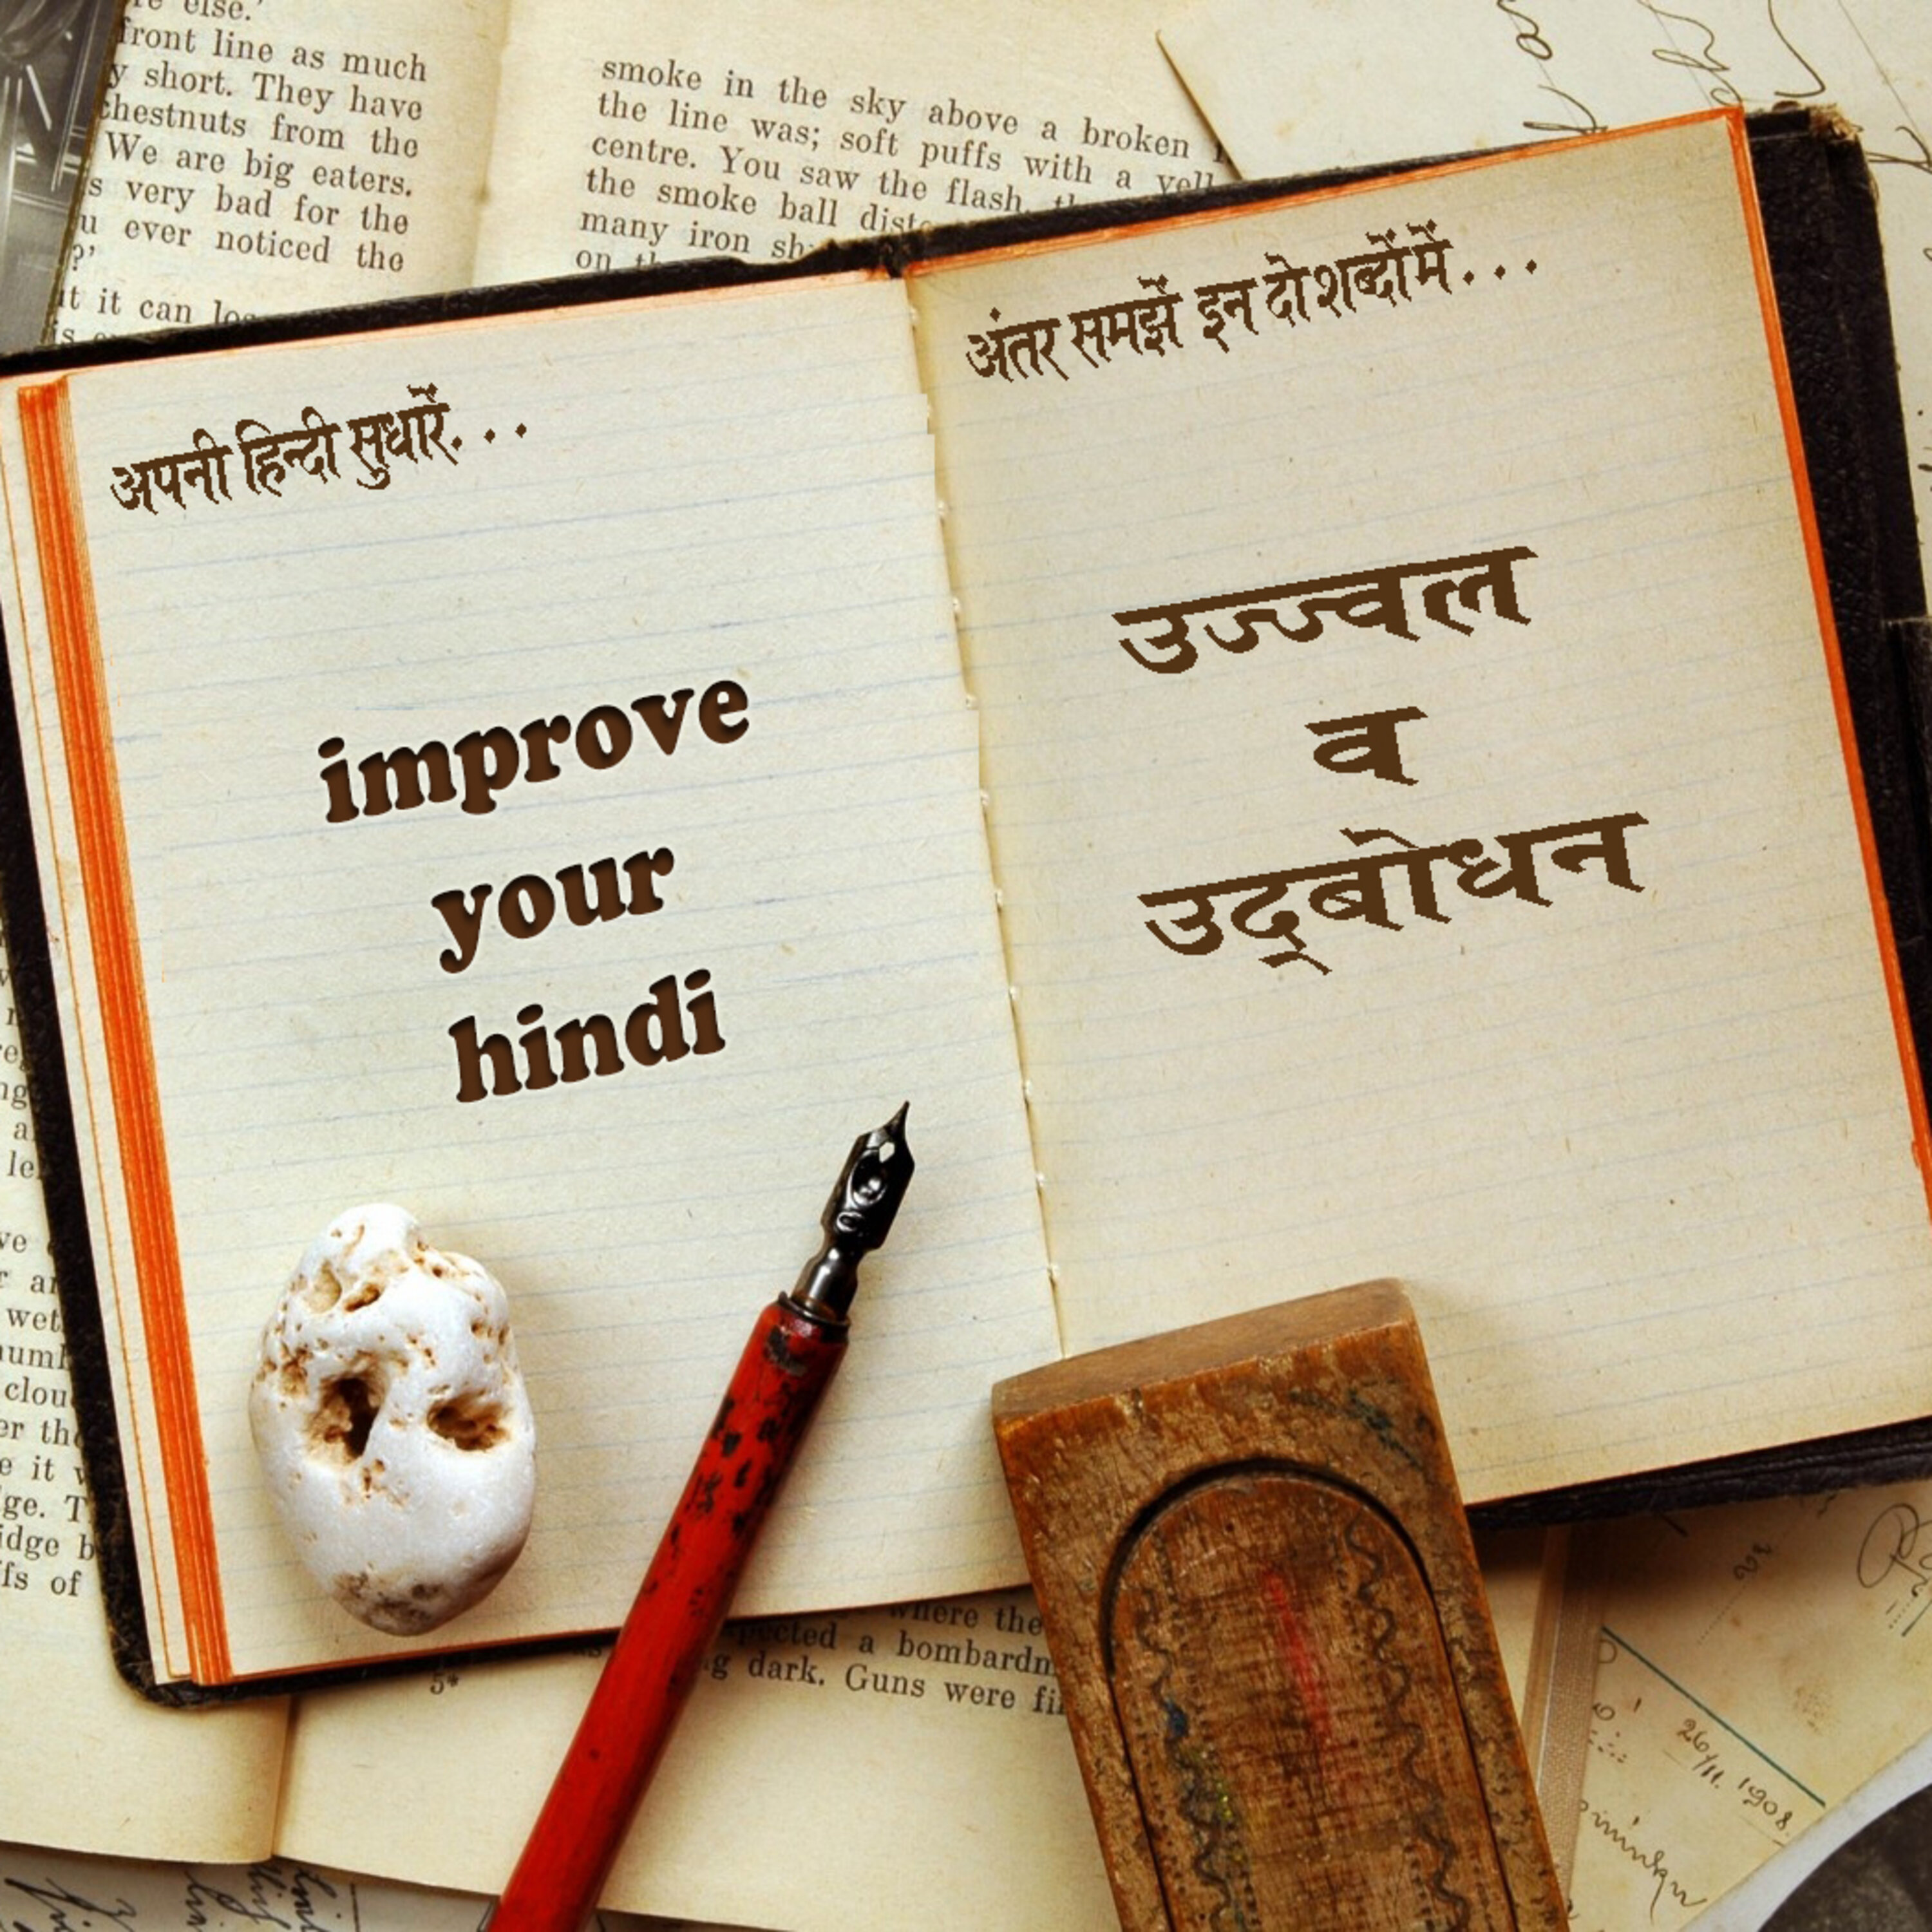 re else.'
front line as much
y short. They have
chestnuts from the
We are big eaters.
s very bad for the
u ever noticed the
?'
it can
smoke in the sky above a broken
the line was; soft puffs with a
centre. You saw the flash
the smoke ball
many iron
on
अपनी हिन्दी सुधारें...
improve
your
hindi
अंतर समझें इन दो शब्दों में...
उज्ज्वल
व
उद्‌बोधन
where the
a
dark. Guns were
5*
it
of
26/11. 1908.